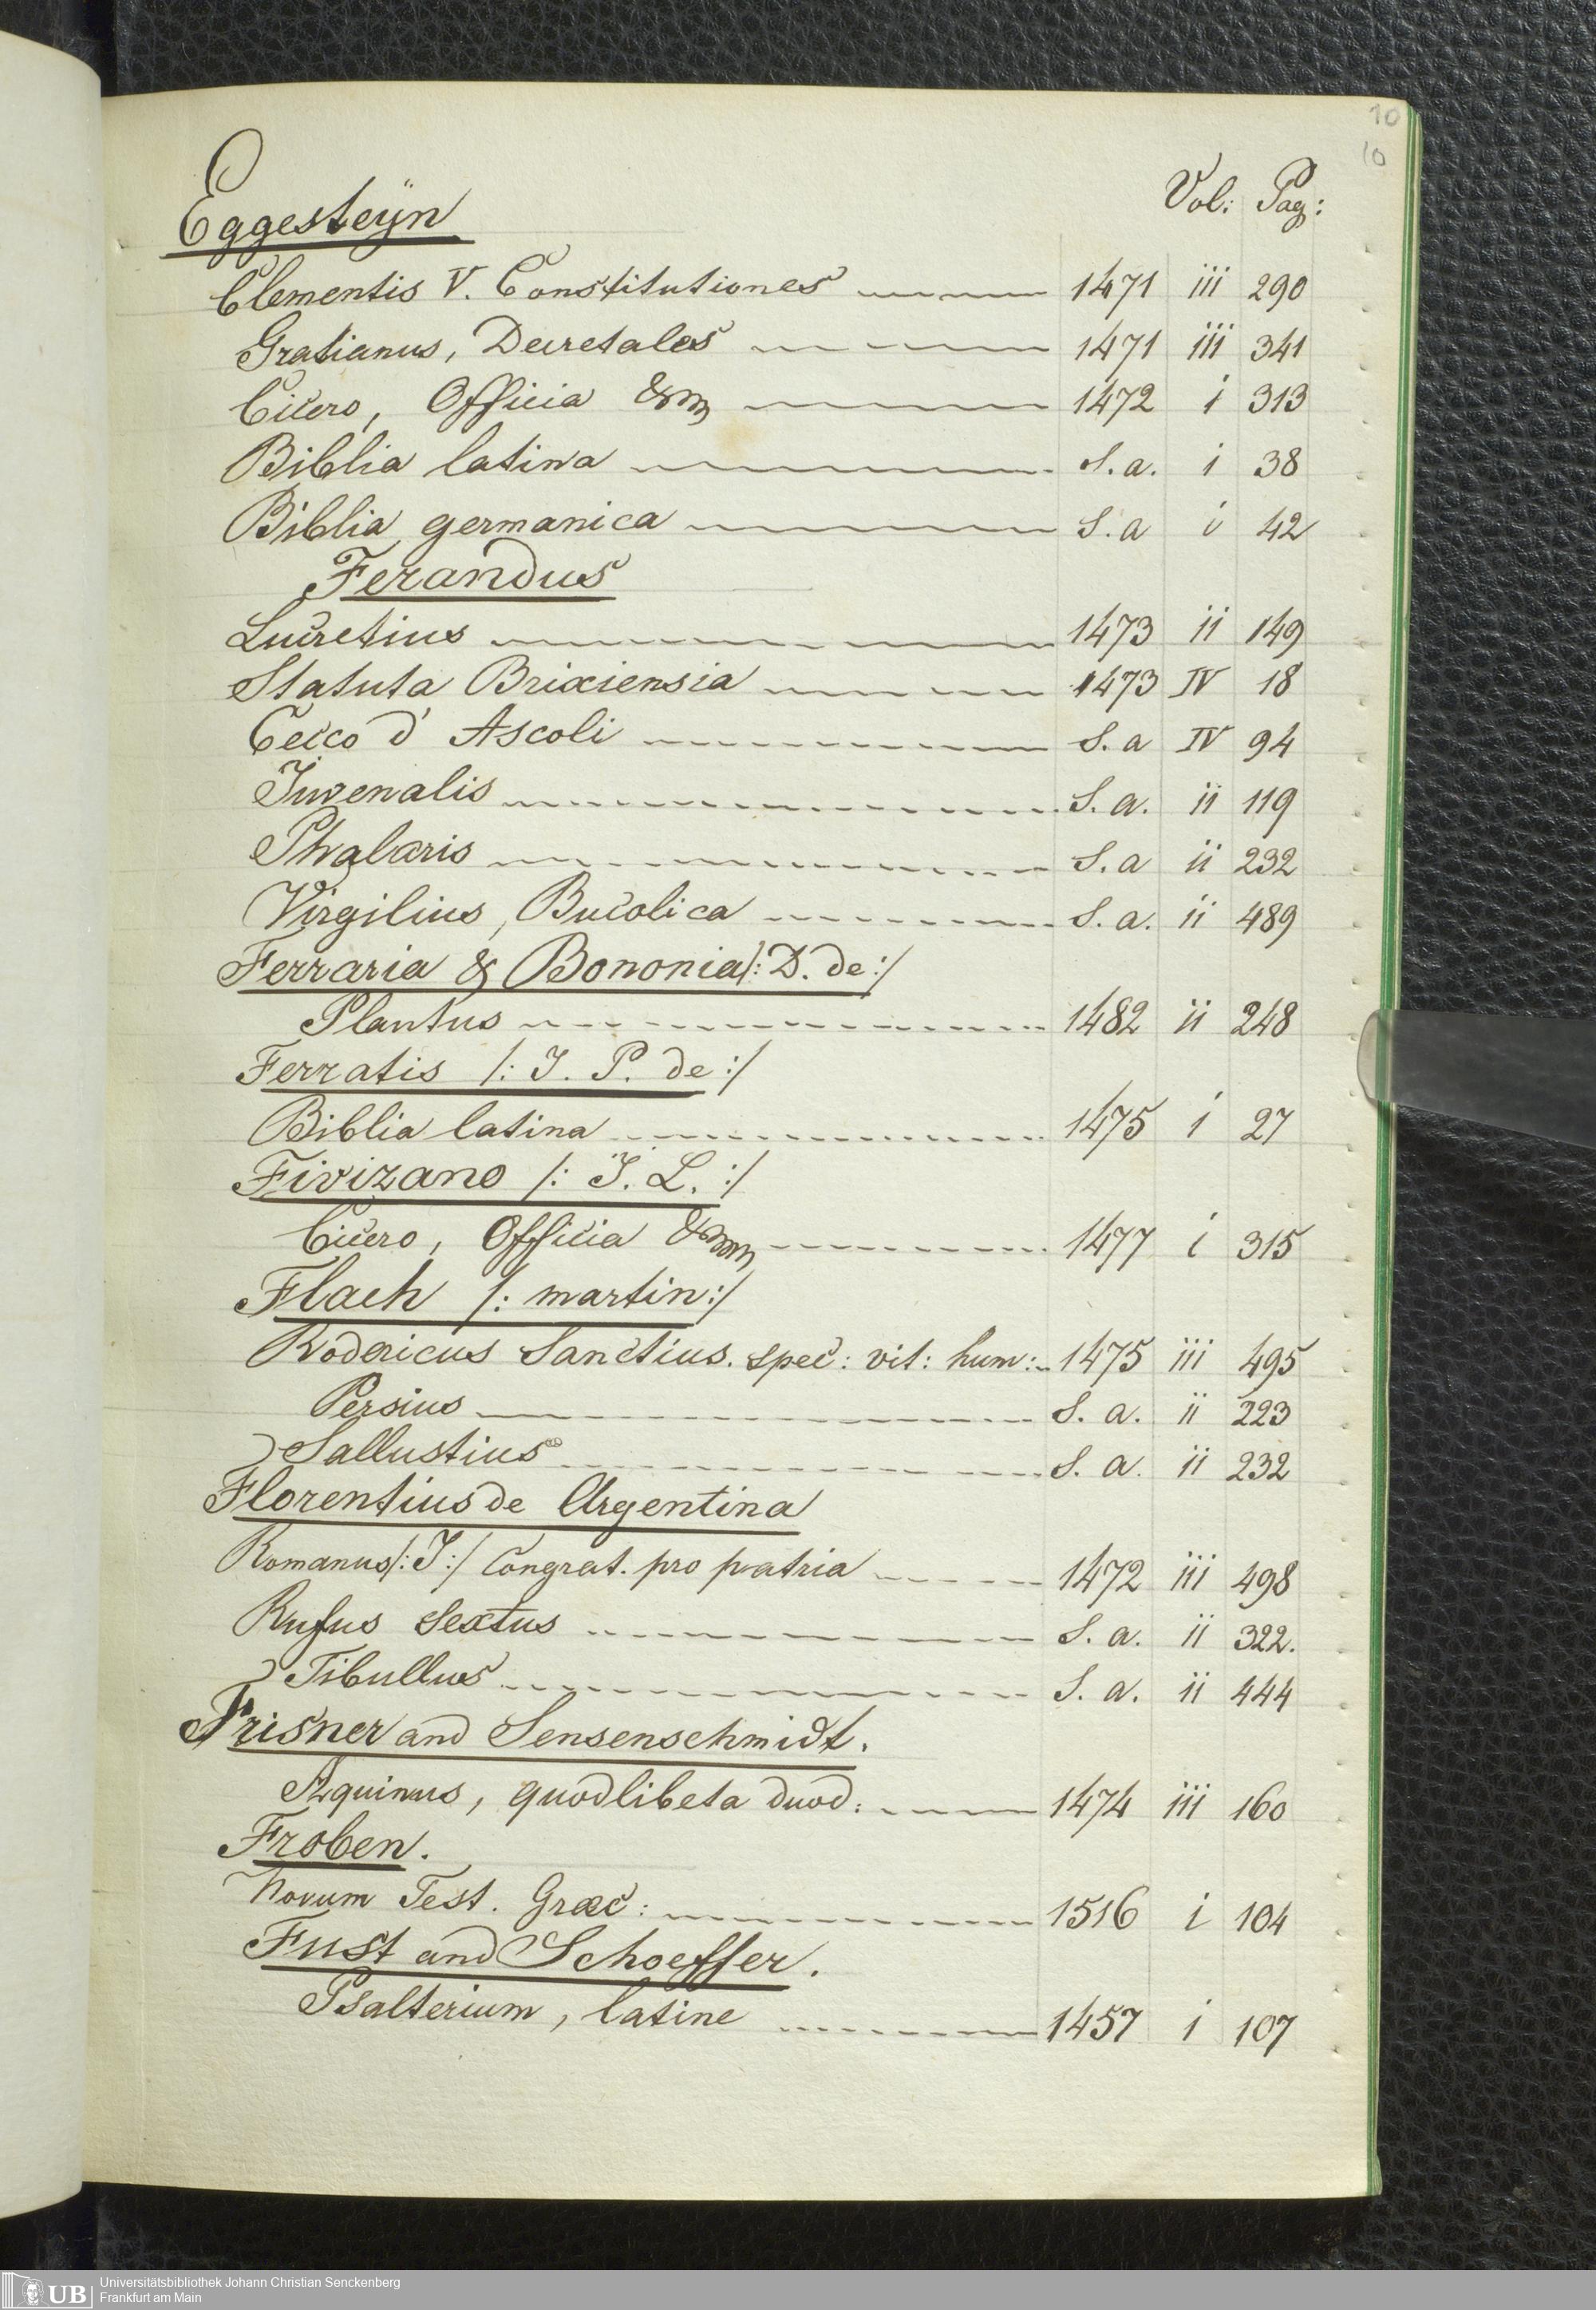 10
10
Vol: Pag:
Eggesteÿn
Clementis V. Constitutiones 1471 iii 290
Gratianus, Decretales 1471 iii 341
Cicero, Officia & 1472 i 313
Biblia latina S.a. i 38
Biblia germanica S.a i 42
Ferandus
Lucretius 1473 ii 149
Statuta Brixiensia 1473 IV 18
Cecco d'Ascoli S.a IV 94
Juvenalis S.a. ii 119
Phalaris S.a ii 232
Virgilius, Bucolica S.a. ii 489
Ferraria & Bononia /: D. de :/
Plautus 1482 ii 248
Ferratis /: J. P. de :/
Biblia latina 1475 i 27
Fivizano /: J. L. :/
Cicero, Officia & 1477 i 315
Flach /: martin :/
Rodericus Sanctius. spec: vit: hum: 1475 iii 495
Persius S. a. ii 223
Sallustius S. a. ii 232
Florentius de Argentina
Romanus /: J :/ Congrat. pro patria 1472 iii 498
Rufus Sextus S. a. ii 322.
Tibullus S. a. ii 444
Frisner and Sensenschmidt.
Aquinus, quodlibeta duod: 1474 iii 160
Froben.
Novum Test. Græc: 1516 i 104
Fust and Schoeffer.
Psalterium, latine 1457 i 107
UB
Universitätsbibliothek Johann Christian Senckenberg
Frankfurt am Main